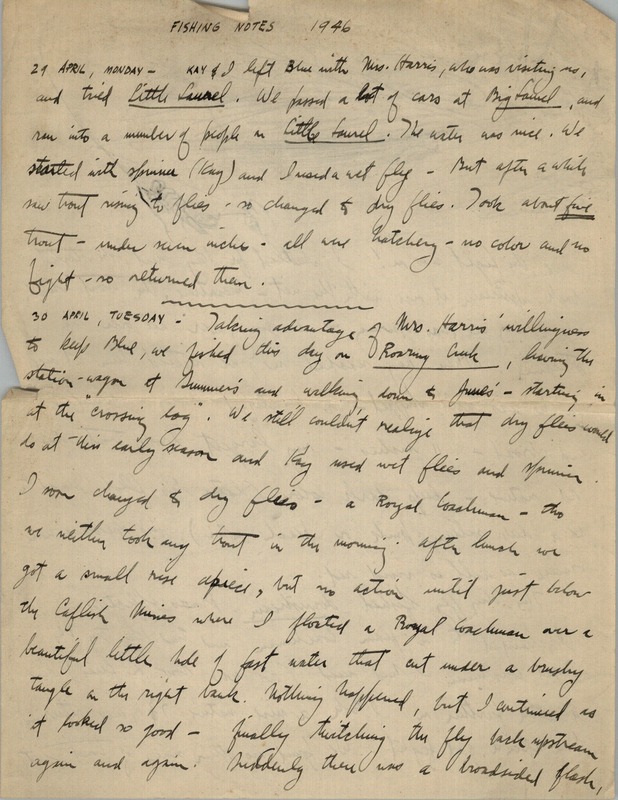 FISHING NOTES 1946
29 APRIL, MONDAY - KAY & I left Blue with Mrs. Harris, who was visiting us,
and tried Little Laurel. We passed a lot of cars at Big Laurel, and
ran into a number of people on Little Laurel. The water was nice. We
started with spinner (Kay) and I used a wet fly - But after a while
saw trout rising to flies - so changed to dry flies. Took about five
trout - under seven inches - all were hatchery - no color and no
fight - so returned them.
30 APRIL, TUESDAY - Taking advantage of Mrs. Harris' willingness
to keep Blue, we fished this day on Roaring Creek, leaving the
station-wagon at and walking down to - starting in
at the "crossing log". We still couldn't realize that dry flies would
do at this early season and Kay used wet flies and spinner.
I soon changed to dry flies - a Royal Coachman - tho
we neither took any trout in the morning. After lunch we
got a small rise apiece, but no action until just below
the where I floated a Royal Coachman over a
beautiful little hole of fast water that cut under a brushy
tangle on the right bank. Nothing happened, but I continued as
it looked so good - finally twitching the fly back upstream
again and again. Suddenly there was a broadsided flash,